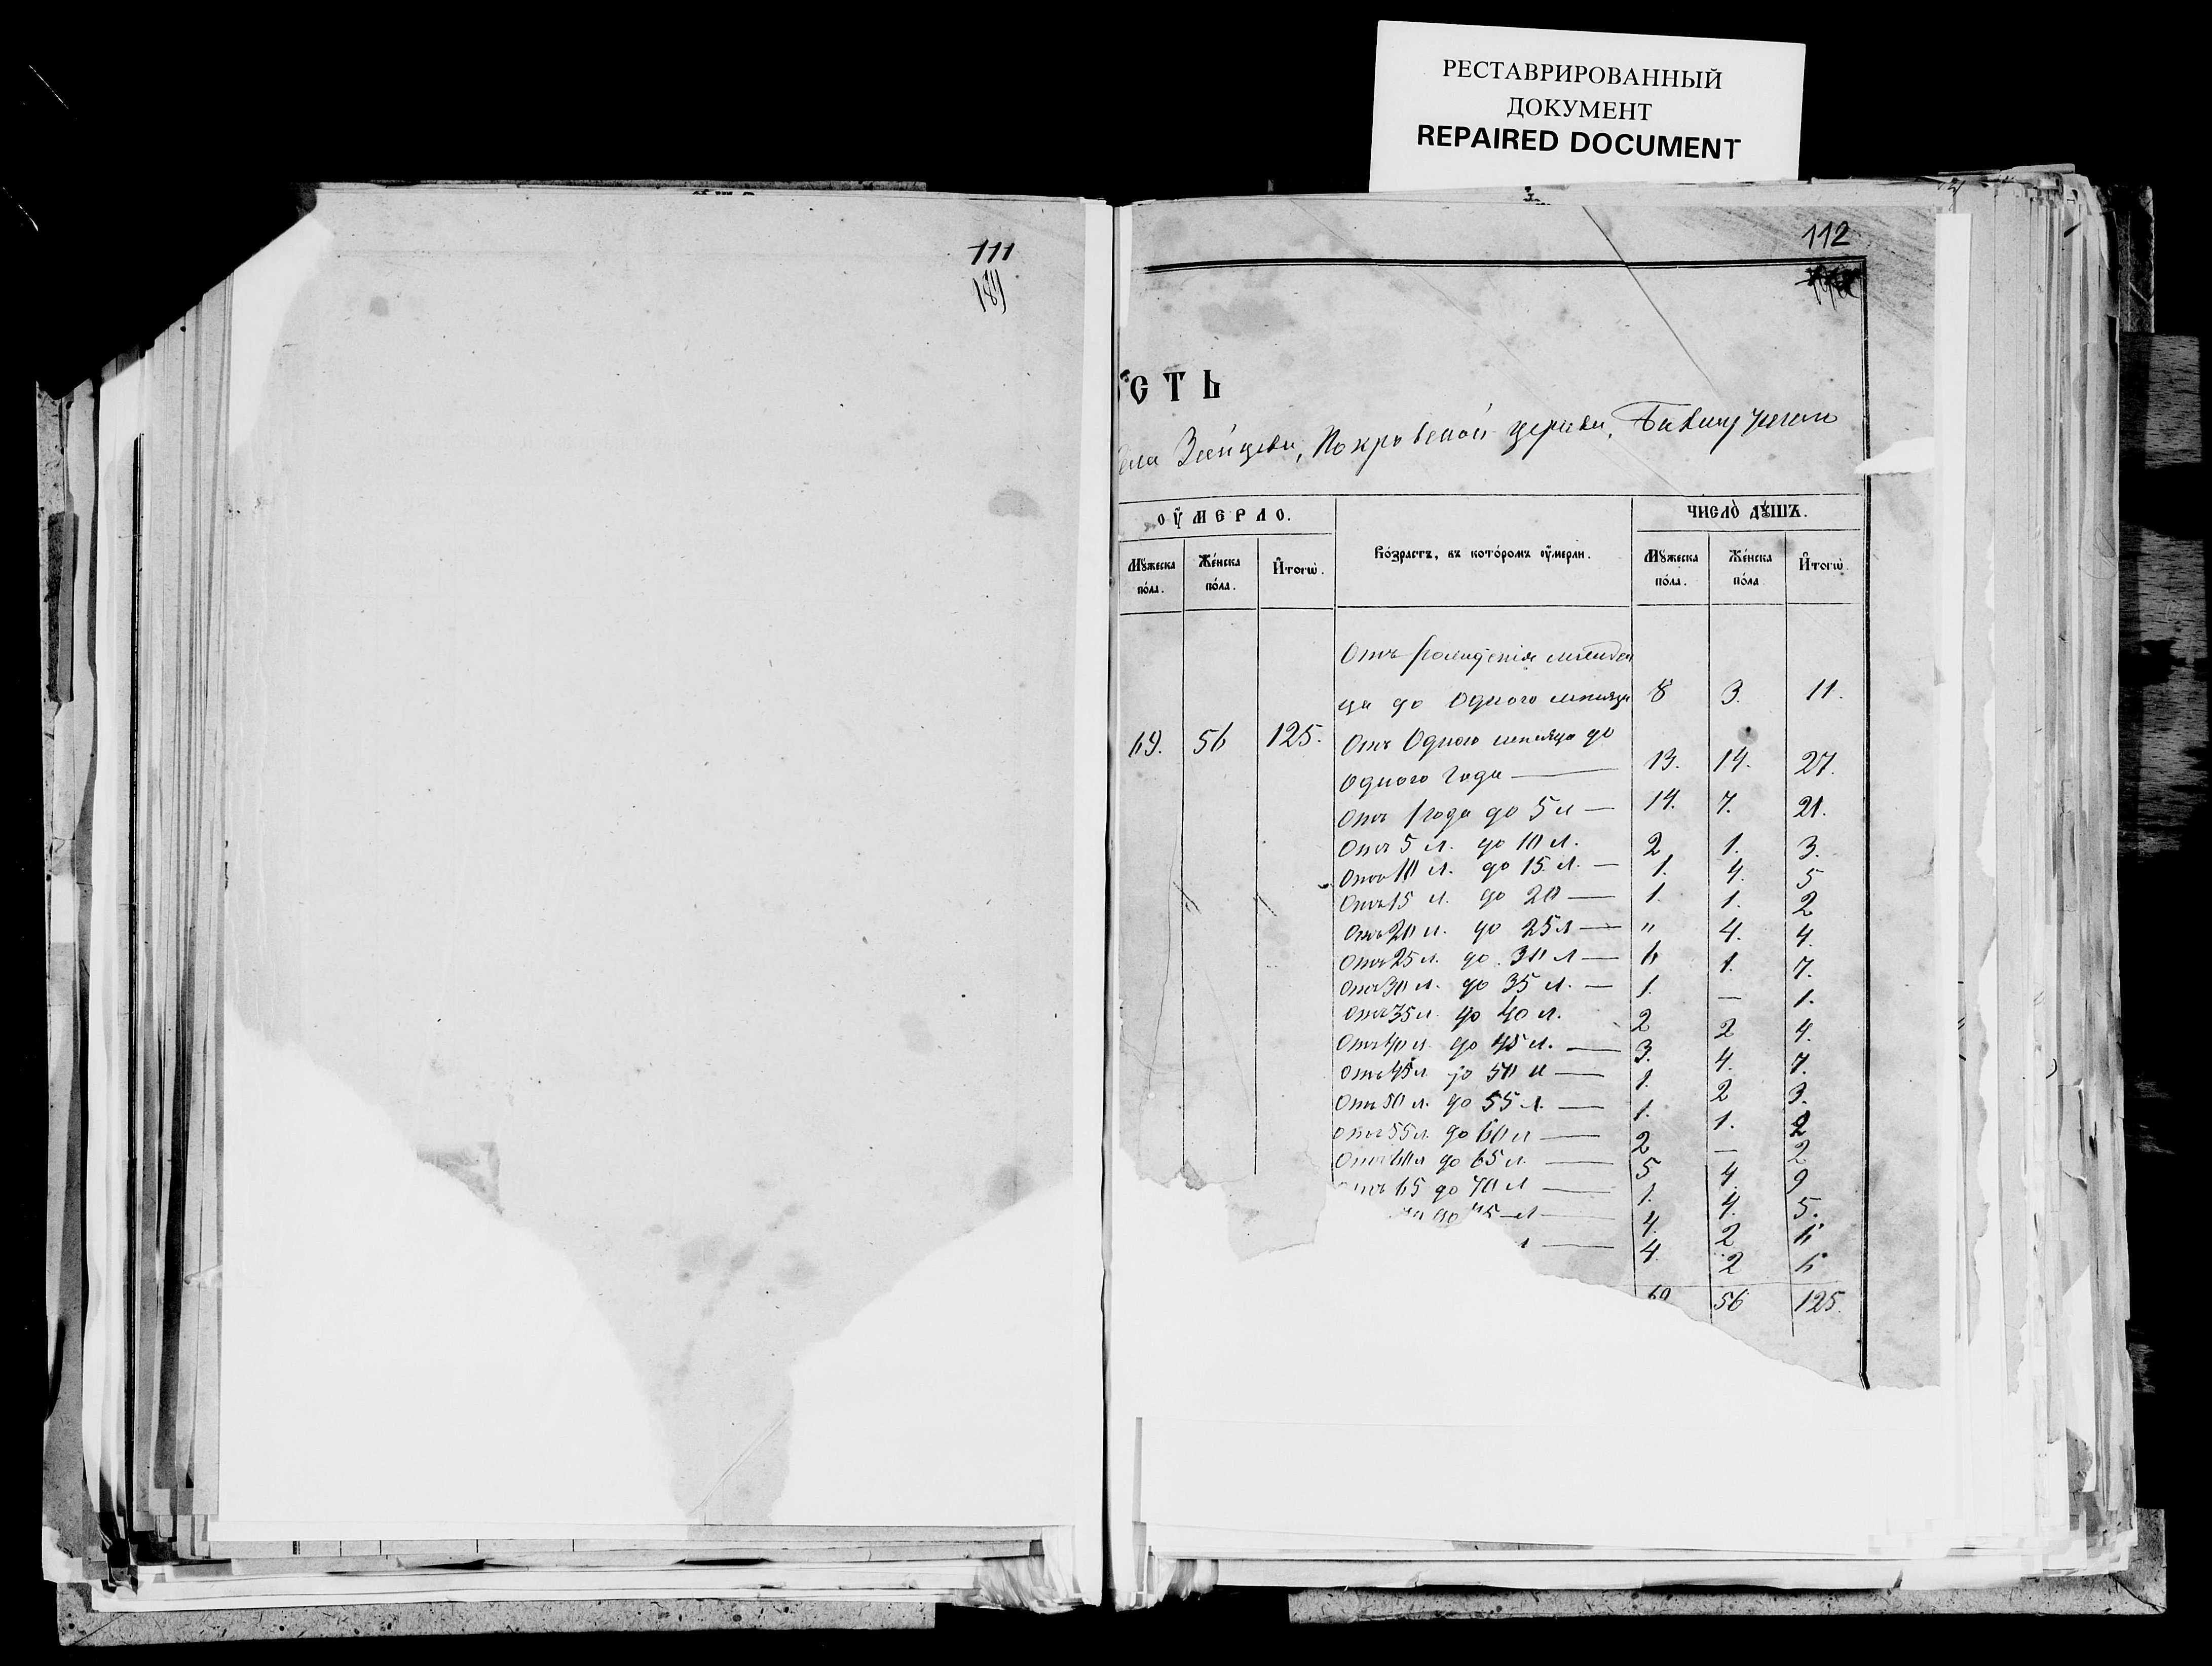 РЕСТАВРИРОВАННЫЙ
ДОКУМЕНТ
REPAIRED DOCUMENT
111
112
СТЬ
Покровской церкви,
ОУМЕРЛО.
Возрастъ, въ которомъ оумерли.
ЧИСЛО ДУШЪ.
Мужеска пола. Женска пола. Итогѡ.
Мужеска пола. Женска пола Итогѡ.
Отъ рожденія младен
ца до одного месяца 8 3. 11.
69. 56 125. Отъ Одного месяца до
Одного года — 13. 14. 27.
Отъ 1 года до 5 л — 14. 7. 21.
Отъ 5 л. до 10 л. 2 1. 3.
Отъ 10 л. до 15 л. — 1. 4. 5
Отъ 15 л. до 20 — 1. 1. 2
Отъ 20 л. до 25 л — " 4. 4.
Отъ 25 л. до 30 л — 6 1. 7.
Отъ 30 л. до 35 л. — 1. — 1.
Отъ 35 л. до 40 л. 2 2 4.
Отъ 40 л. до 45 л. — 3. 4. 7.
Отъ 45 л до 50 л — 1. 2 3.
Отъ 50 л. до 55 л. — 1. 1. 2
Отъ 55 л. до 60 л — 2 — 2
Отъ 60 л до 65 л. — 5 4. 9
отъ 65 до 70 л — 1. 4. 5.
до 75 л — 4. 2 6
л — 4. 2 6
69 56 125.